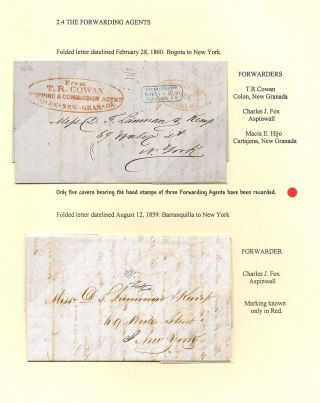 2.4 THE FORWARDING AGENTS
Folded letter datelined February 28, 1860: Bogota to New York.
From
T. R. COWAN
SHIPPING & COMMISSION AGENT
COLON-NEW-GRANADA
69 Water St
N. York
FORWARDERS
T.R.Cowan
Colon, New Granada
Charles J. Fox
Aspinwall
Macia E. Hijo
Cartajena, New Granada
Only five covers bearing the hand stamps of three Forwarding Agents have been recorded.
Folded letter datelined August 12, 1859: Barranquilla to New York
Messrs D. T. Lanman & Kemp
69 Water Street
New York
FORWARDER
Charles J. Fox
Aspinwall
Marking known
only in Red.